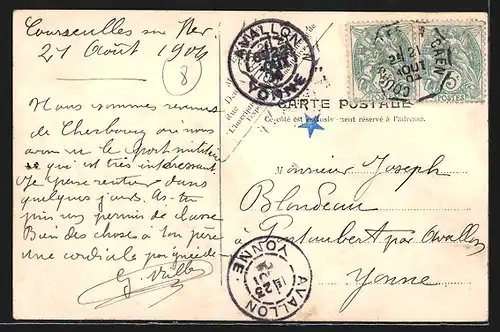 Courseulles sur Mer
21 Août 1904
8
AVALLON
YONNE
CARTE POSTALE
Ce côté est exclusivement réservé à l'adresse.
POSTES
CAEN
25
AOUT
04
Nous sommes revenus
de Cherbourg où nous
avons vu le port militaire
ce qui est très intéressant.
Je pense rentrer dans
quelques jours. As-tu
pris ton permis de chasse
Bien des choses à ton père
une cordiale poignée de
Monsieur Joseph
Blondeau
à Pontaubert par Avallon
Yonne
AVALLON
23
YONNE